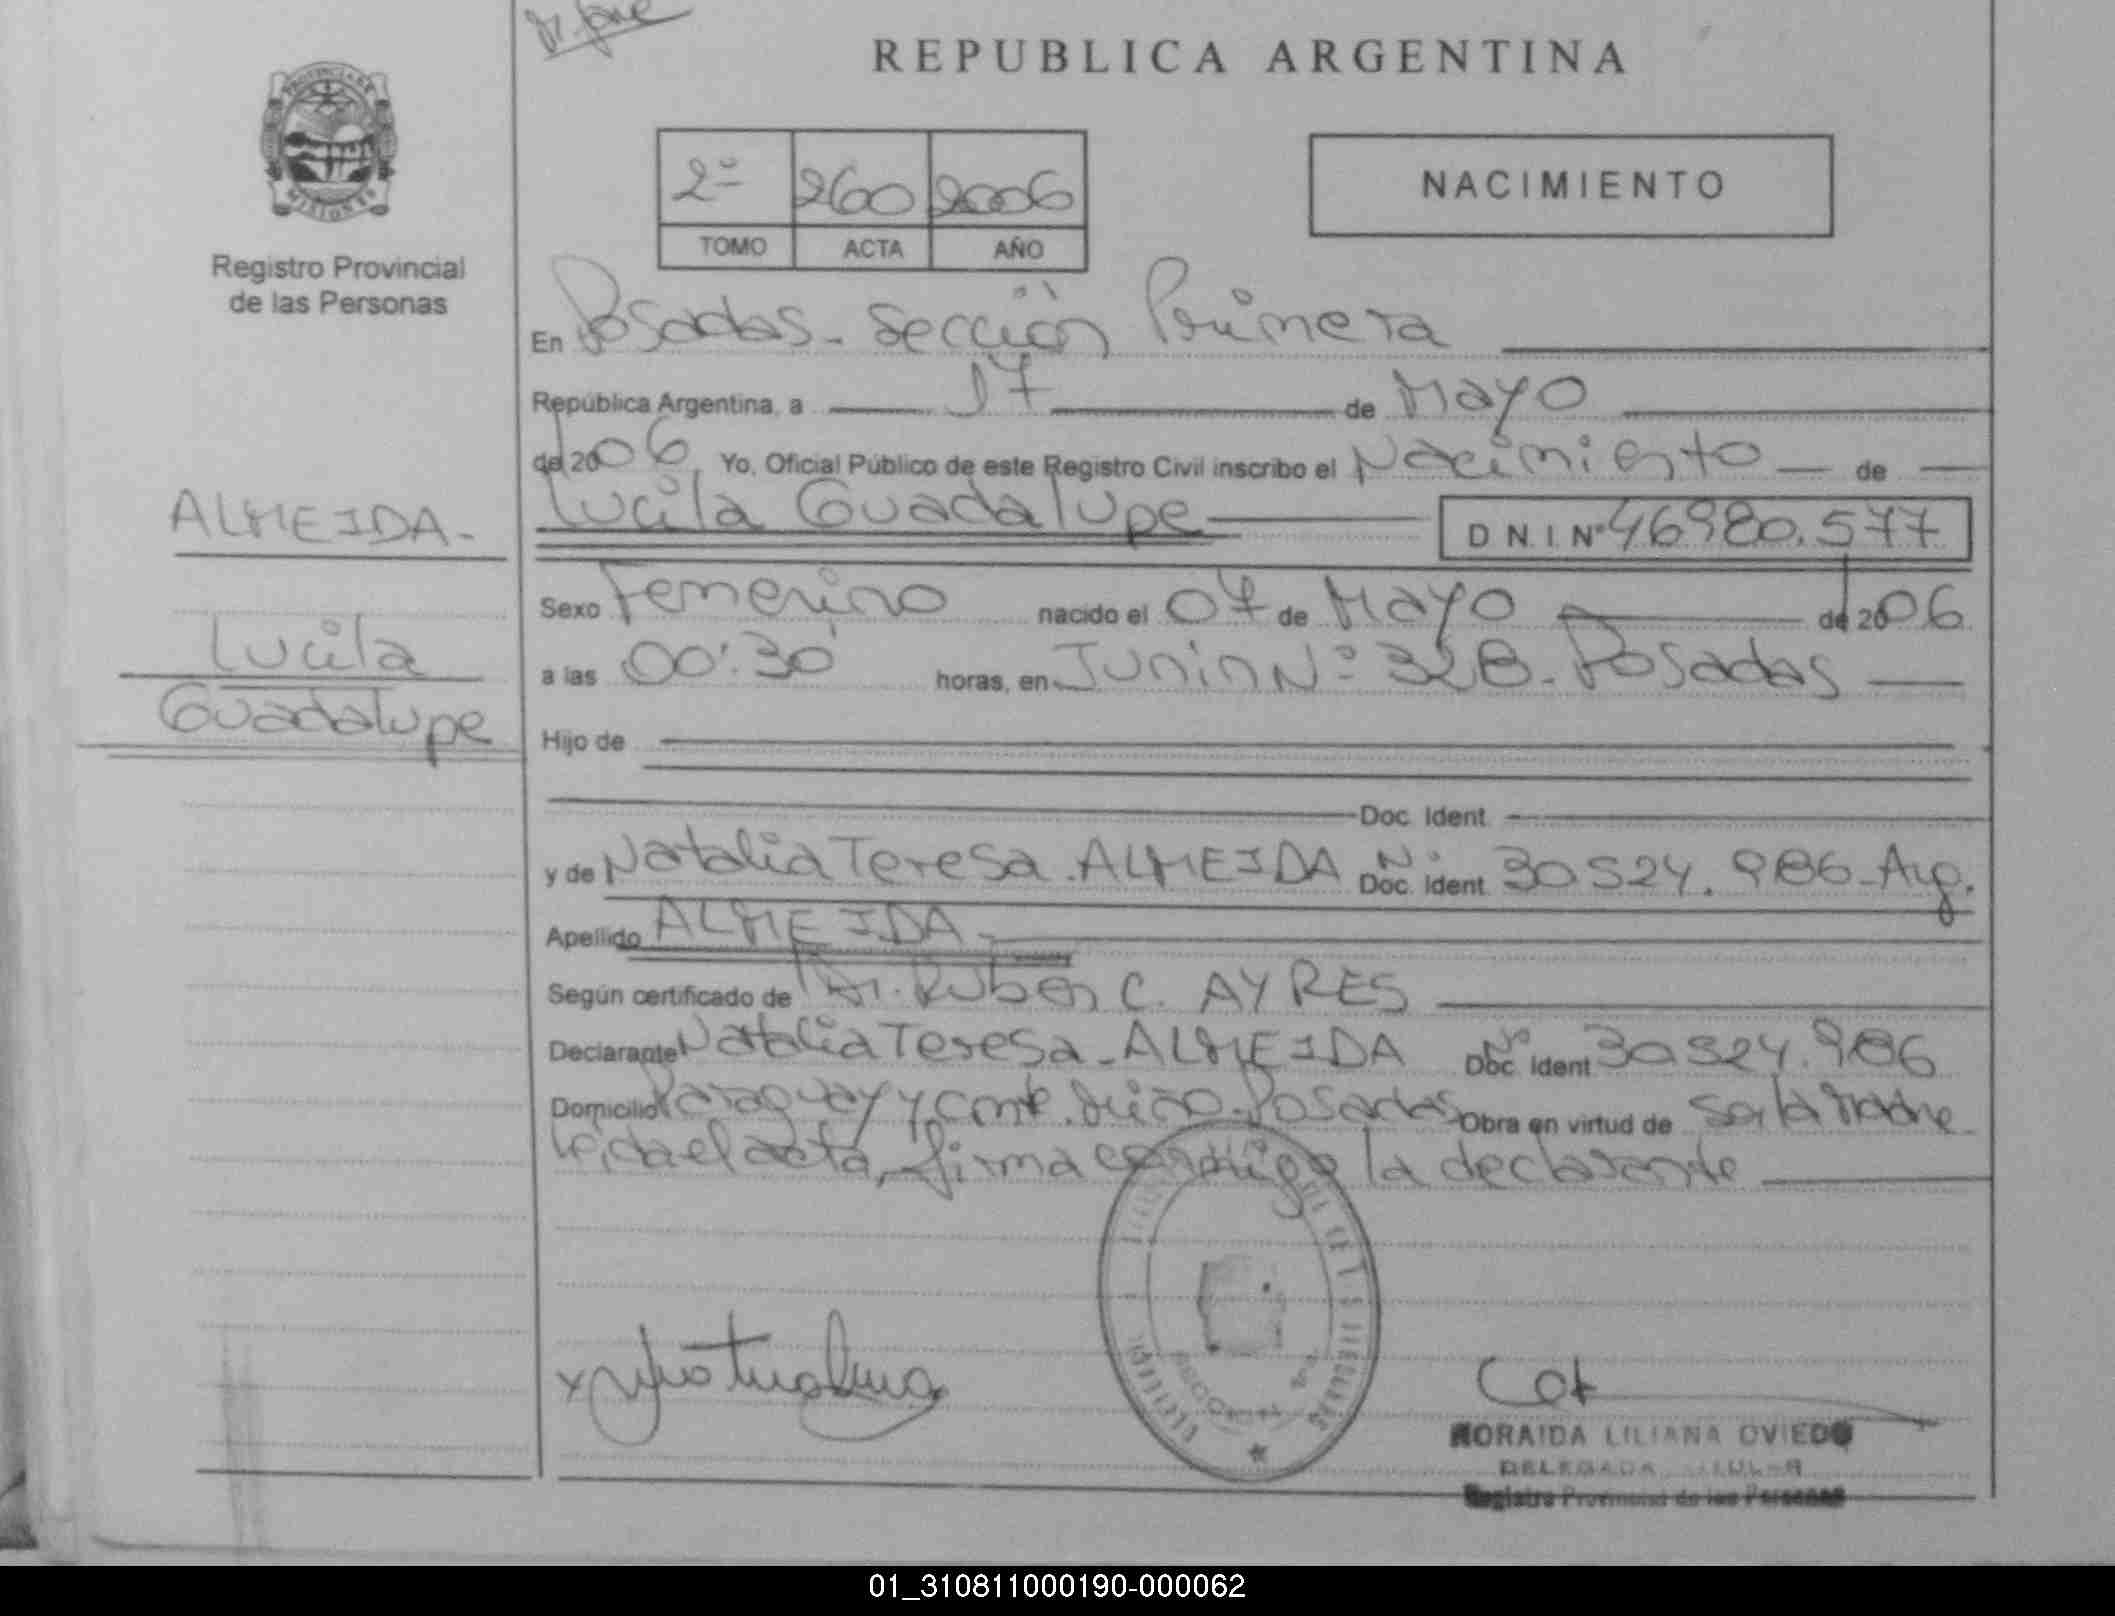 REPUBLICA ARGENTINA
PROVINCIA DE
MISIONES
Registro Provincial
de las Personas
2º 260 2006
TOMO ACTA AÑO
NACIMIENTO
En Posadas - Sección Primera
República Argentina, a 17 de Mayo
de 2006 Yo, Oficial Público de este Registro Civil inscribo el Nacimiento de
Lucila Guadalupe D.N.I. Nº 46980.577
ALMEIDA -
Lucila
Guadalupe
Sexo Femenino nacido el 07 de Mayo de 2006
a las 00:30 horas, en Junin Nº 328 - Posadas
Hijo de
Doc. Ident.
y de Natalia Teresa ALMEIDA Doc. Ident. Nº 30524.986 - Arg.
Apellido ALMEIDA -
Según certificado de Dr. Ruben C. AYRES
Declarante Natalia Teresa - ALMEIDA Doc. Ident Nº 30524.986
Domicilio Paraguay y Cmte. Posadas Obra en virtud de ser la madre
leida el acta, firma conmigo la declarante
MORAIDA LILIANA OVIEDO
DELEGADA TITULAR
Registro Provincial de las Personas
01_310811000190-000062